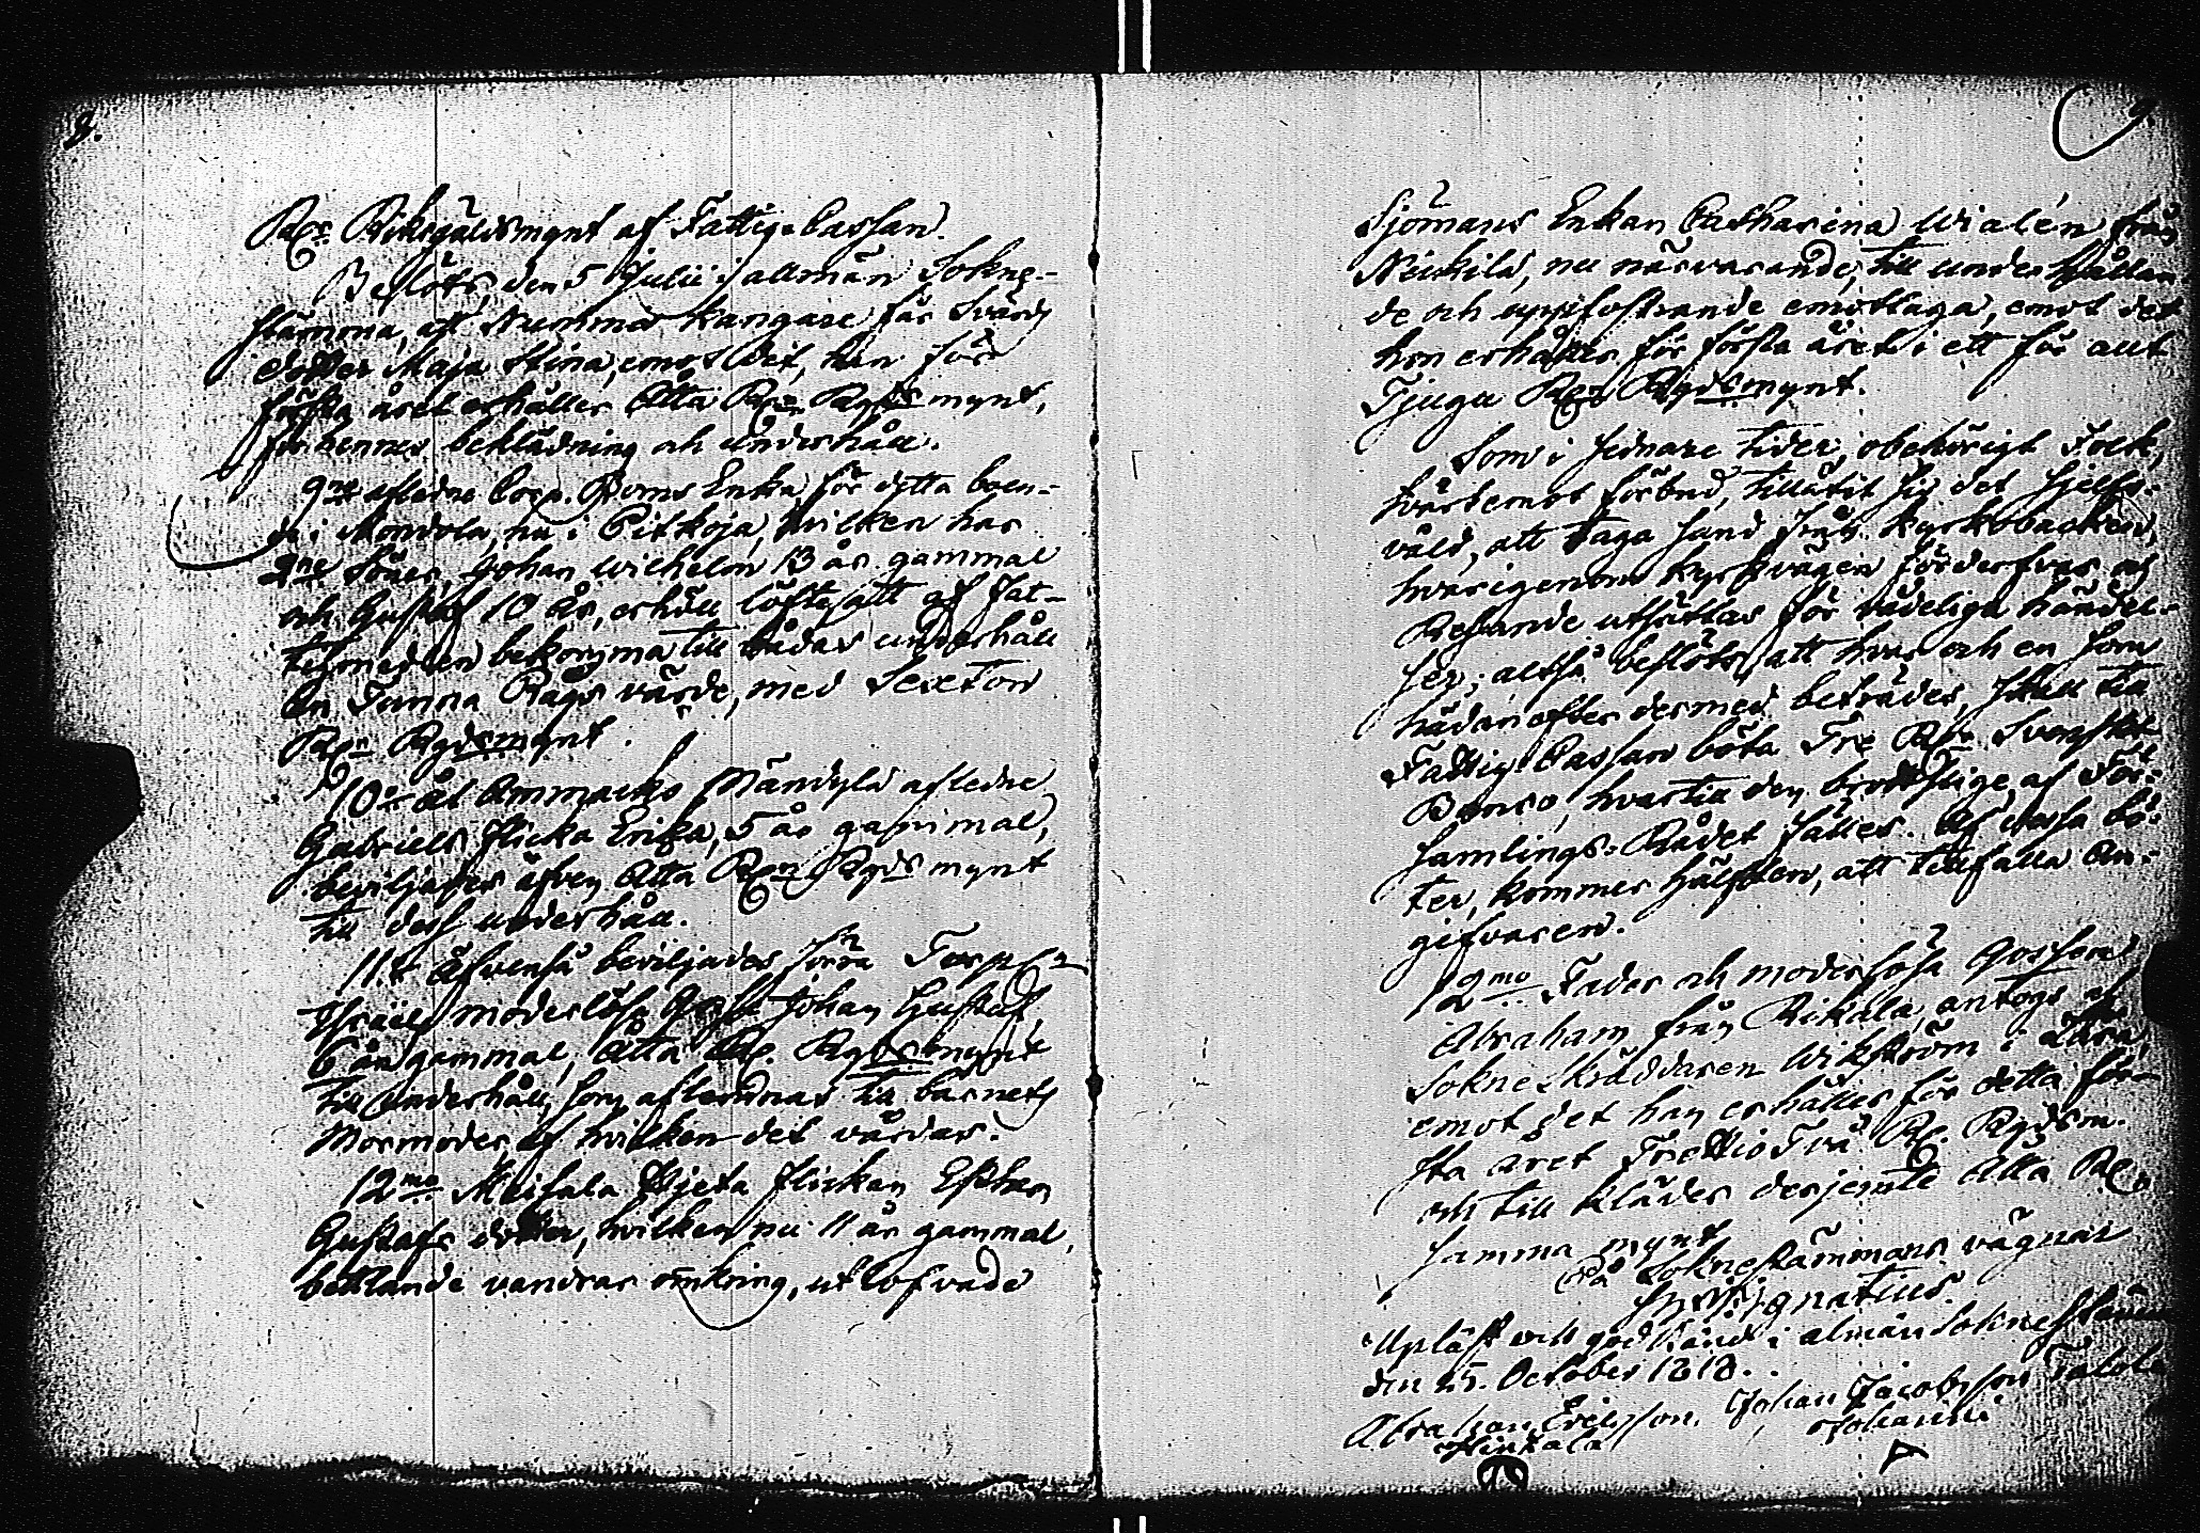 8.
Rdr Riksgäldsmynt af Fattig-Cassan.
Beslöts, den 5 Julii i allmän Sokne-
stämma, att Nummis Kangare får Svärds
dotter Maja Stina, emot det, han för
första året erhåller Åtta Rdr Rgds mynt,
för hennes beklädning och underhåll.
9no afledne Corp. Boms Enka för detta boen-
de i Mondola, nu i Pitkoja, hvilken har
2ne Söner, Johan Wilhelm 13 år gammal
och Gustaf 10 år, erhöll löfte, att af Fat-
tigmedlen bekomma till bådas underhåll
En Tunna Rågs värde, med Sexton
Rdr Rgdsmynt.
10o Åt Ammacko Mändylä afledne
Gabriels flicka Erika, 5 år gammal,
beviljades äfven Åtta Rdr Rgds mynt
till dess underhåll.
11. Äfvenså beviljades förra
Israels moderlösa Gosse Johan Gustaf,
6 år gammal, Åtta Rd. Rgdsmynt
till underhåll, som aflemnas till barnets
Mormoder, af hvilken det vårdas.
12mo Meisala Pijeta flickan Esther
Gustafs dotter, hvilken nu 11 år gammal,
bettlande vandrar omkring, utlofvade
9.
Sjömans Enkan Catharina Wialén från
Niukila, nu närvarande, till underhållan-
de och uppfostrande emottaga, emot det
hon erhåller för första året i ett för allt
Tjugu Rdr Rgdsmynt.
Som i senare tider, obehörigt Folk,
tvärtemot förbud, tillåtit sig det sjelfs-
våld, att taga sand från Kyrkobacken,
hvarigenom Kyrkvägen förderfvas och
Resande utsättas för vådeliga händel-
ser; altså beslöts, att hvar och en som
hädanefter dermed beträdes, skall till
Fattig-Cassan böta Tre Rdr Svenskt
Banco, hvartill den brottslige af För-
samlings-Rådet fälles. Af dessa bö-
ter, kommer hälften, att tillfalla An-
gifvaren.
12mo Fader och moderlösa Gossen
Abraham från Rikala, antogs af
Sokne Skräddaren Wikström i
emot det han erhåller för detta för-
sta året Trettio Två Rd. Rgdsm.
och till kläder derjemte Åtta Rd
samma mynt.
På Soknestämmans vägnar
Ignatius.
Upläst och godkändt i almän Soknestäm
den 25. October 1818.
Abraham Ericsson, Johan Jacobsson